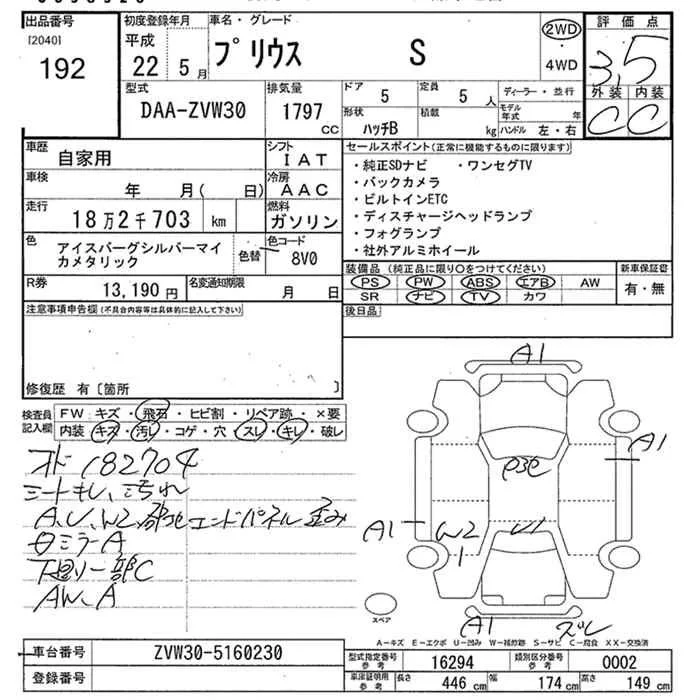 出品番号 初度登録年月 車名・グレード 評価点
[2040] 192
平成 22 5月 プリウス S 2WD ・ 4WD 3.5
外装 内装
C C
型式 排気量 ドア 定員 ディーラー・並行
DAA-ZVW30 1797 CC 5 5人 モデル年式 年
形状 積載 ハンドル 左・右
ハッチB kg
車歴 自家用 シフト IAT
セールスポイント(正常に機能するものに限ります)
車検 年 月( 日) 冷房 AAC
・純正SDナビ ・ワンセグTV
・バックカメラ
・ビルトインETC
・ディスチャージヘッドランプ
・フォグランプ
・社外アルミホイール
走行 18万2千703 km 燃料 ガソリン
色 アイスバーグシルバーマイカメタリック 色替 色コード 8V0
装備品(純正品に限り○をつけてください) 新車保証書
PS PW ABS エアB AW 有・無
SR ナビ TV カワ
R券 13,190円 名変通知期限 月 日
後日品
注意事項申告欄(不具合内容等は具体的に記入して下さい)
修復歴 有〔箇所 〕
検査員記入欄
FW キズ・飛石・ヒビ割・リペア跡・×要
内装 キズ・汚レ・コゲ・穴・スレ・キレ・破レ
オド182704
シートキレ、汚れ
A、U、W2、エンドパネル歪み
ミラーA
下廻り一部C
AW、A
A1
A1
P3C
A1 W2 U1
A1 ズレ
スペア
A−キズ E−エクボ U−凹み W−補修跡 S−サビ C−腐食 XX−交換済
車台番号 ZVW30-5160230
登録番号
型式指定番号 参考 16294 類別区分番号 参考 0002
車庫証明用 参考 長さ 446 cm 幅 174 cm 高さ 149 cm